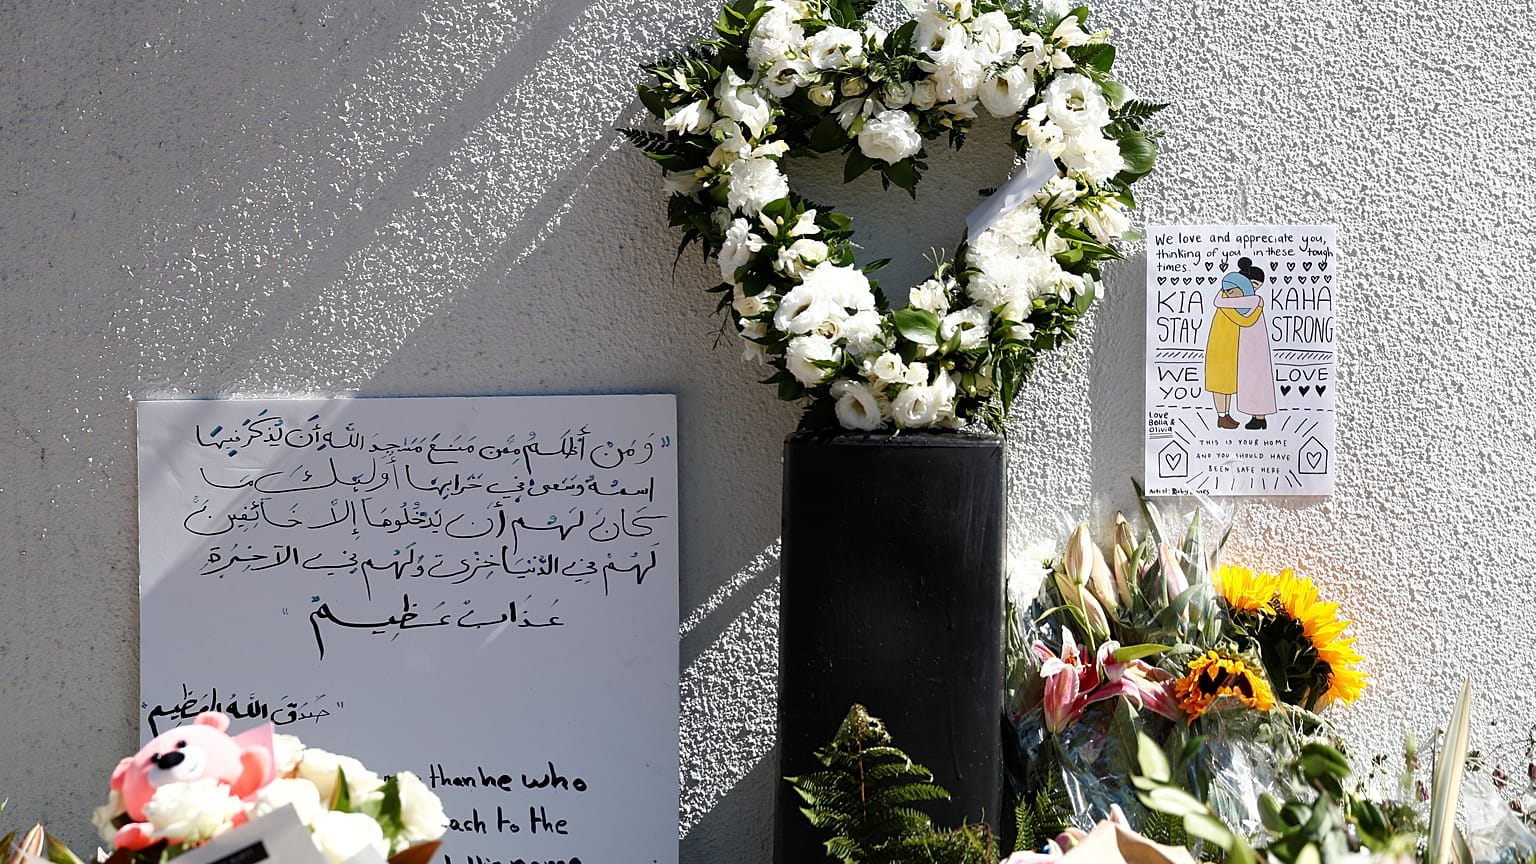 "وَمَنْ أَظْلَمُ مِمَّن مَنَعَ مَسَٰجِدَ اللَّهِ أَن يُذْكَرَ فِيهَا
اسمُهُ وَسَعَىٰ فِي خَرَابِهَا أُولَٰئِكَ مَا
كَانَ لَهُم أَن يَدْخُلُوهَا إِلَّا خَائِفِينَ
لَهُمْ فِي الدُّنْيَا خِزْيٌ وَلَهُم فِي الآخِرَةِ
عَذَابٌ عَظِيمٌ "
"صَدَقَ اللَّهُ العَظِيم"
than he who
each to the
We love and appreciate you,
thinking of you in these tough
times.
KIA KAHA
STAY STRONG
WE LOVE
YOU
Love
Bella &
Olivia
THIS IS YOUR HOME
AND YOU SHOULD HAVE
BEEN SAFE HERE
Artist: Ruby Jones